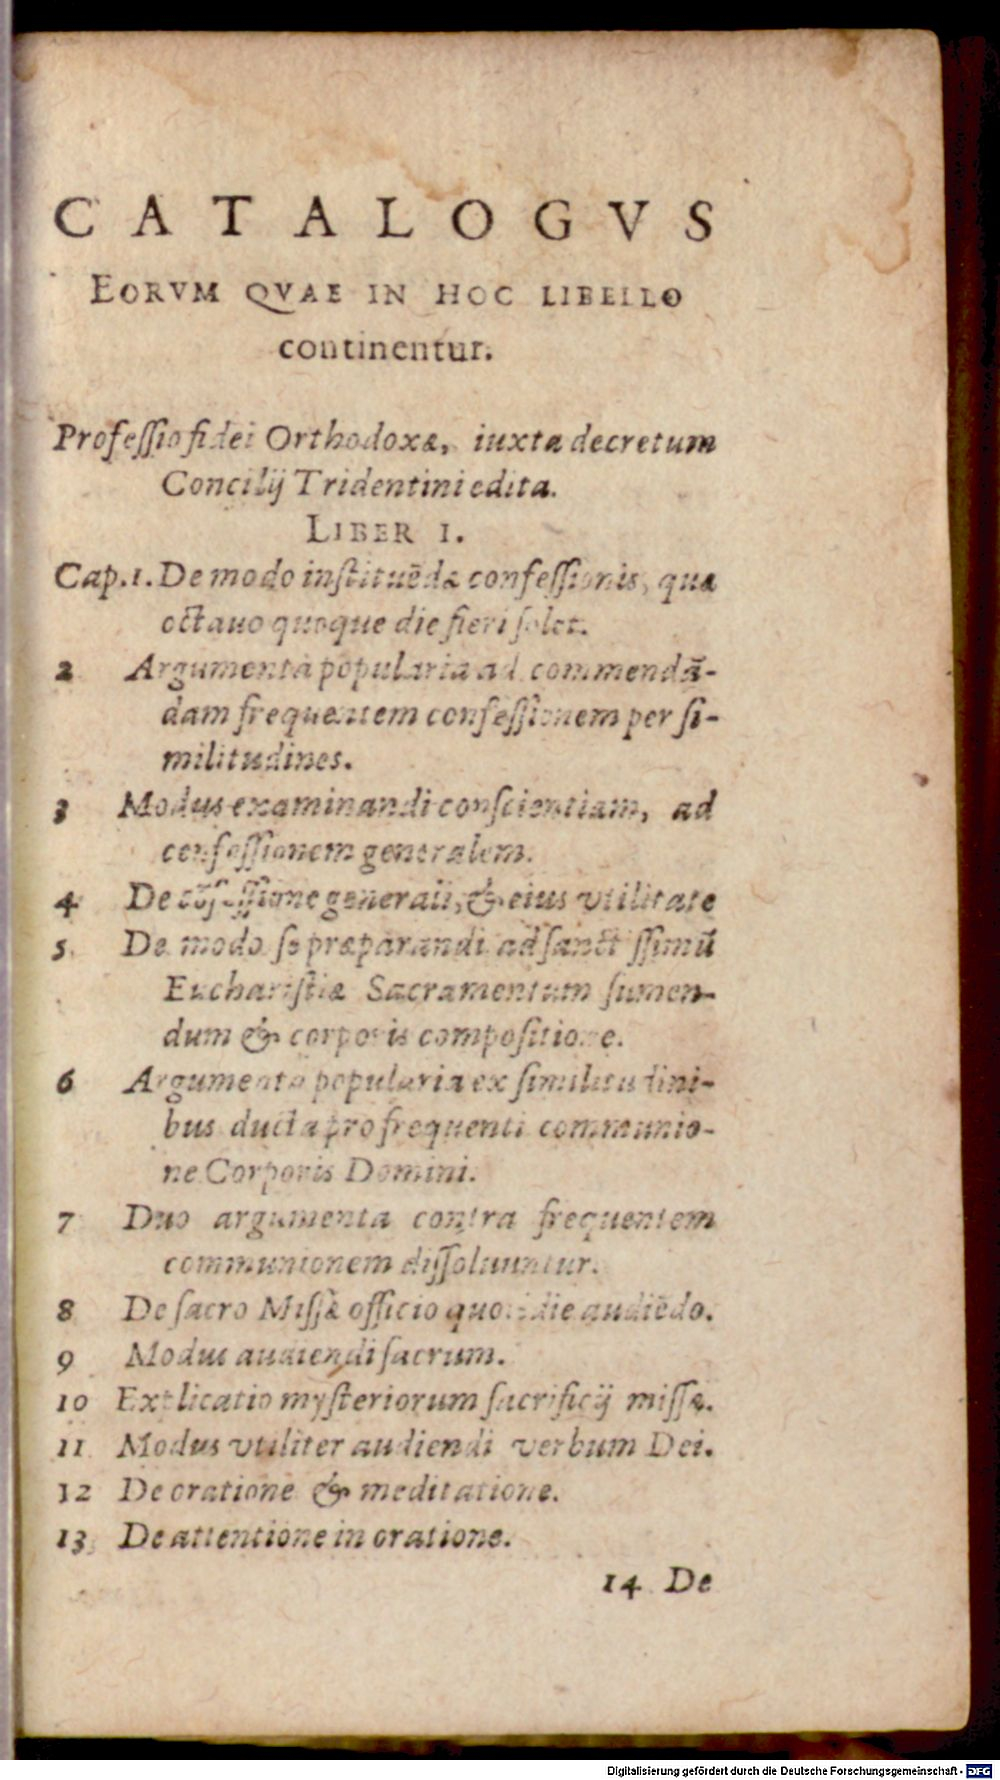 CATALOGVS
EORVM QVAE IN HOC LIBELLO
continentur.
Professio fidei Orthodoxæ, iuxta decretum
Concilij Tridentini edita.
LIBER I.
Cap. 1. De modo instituẽdæ confessionis, quæ
octauo quoque die fieri solet.
2 Argumenta popularia ad commendã-
dam frequentem confessionem per si-
militudines.
3 Modus examinandi conscientiam, ad
confessionem generalem.
4 De cõfessione generali, & eius vtilitate
5 De modo se præparandi ad sanctissimũ
Eucharistiæ Sacramentum sumen-
dum & corporis compositione.
6 Argumenta popularia ex similitudini-
bus ducta pro frequenti communio-
ne Corporis Domini.
7 Duo argumenta contra frequentem
communionem dissoluuntur.
8 De sacro Missæ officio quotidie audiẽdo.
9 Modus audiendi sacrum.
10 Explicatio mysteriorum sacrificij missæ.
11 Modus vtiliter audiendi verbum Dei.
12 De oratione & meditatione.
13 De attentione in oratione.
14 De
Digitalisierung gefördert durch die Deutsche Forschungsgemeinschaft - DFG